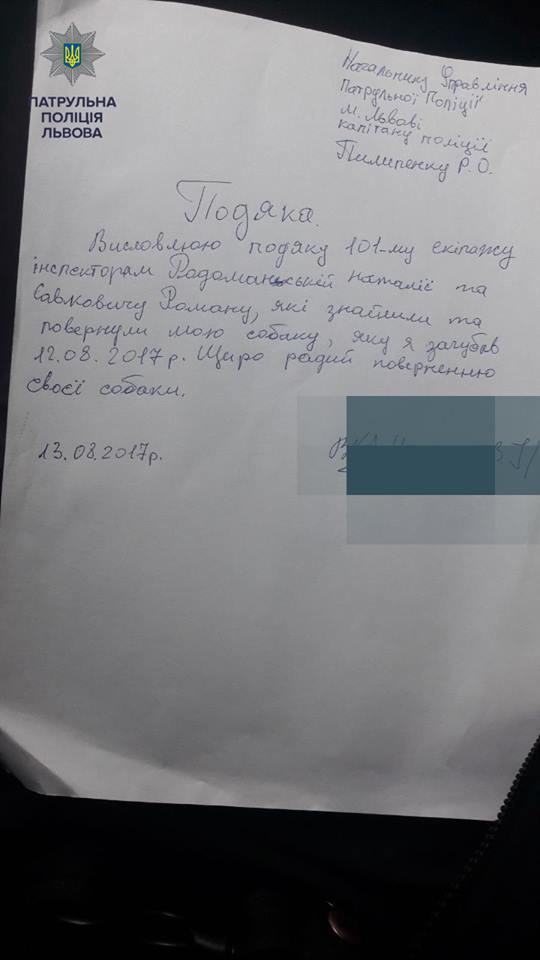 ПАТРУЛЬНА
ПОЛІЦІЯ
ЛЬВОВА
Начальнику Управління
Патрульної Поліції
м. Львові
капітану поліції
Пилипенку Р.О.
Подяка.
Висловлюю подяку 101-му екіпажу
інспекторам Радоманській Наталії та
Савковичу Роману, які знайшли та
повернули мою собаку, яку я загубив
12.08.2017р. Щиро радий поверненню
своєї собаки.
13.08.2017р.